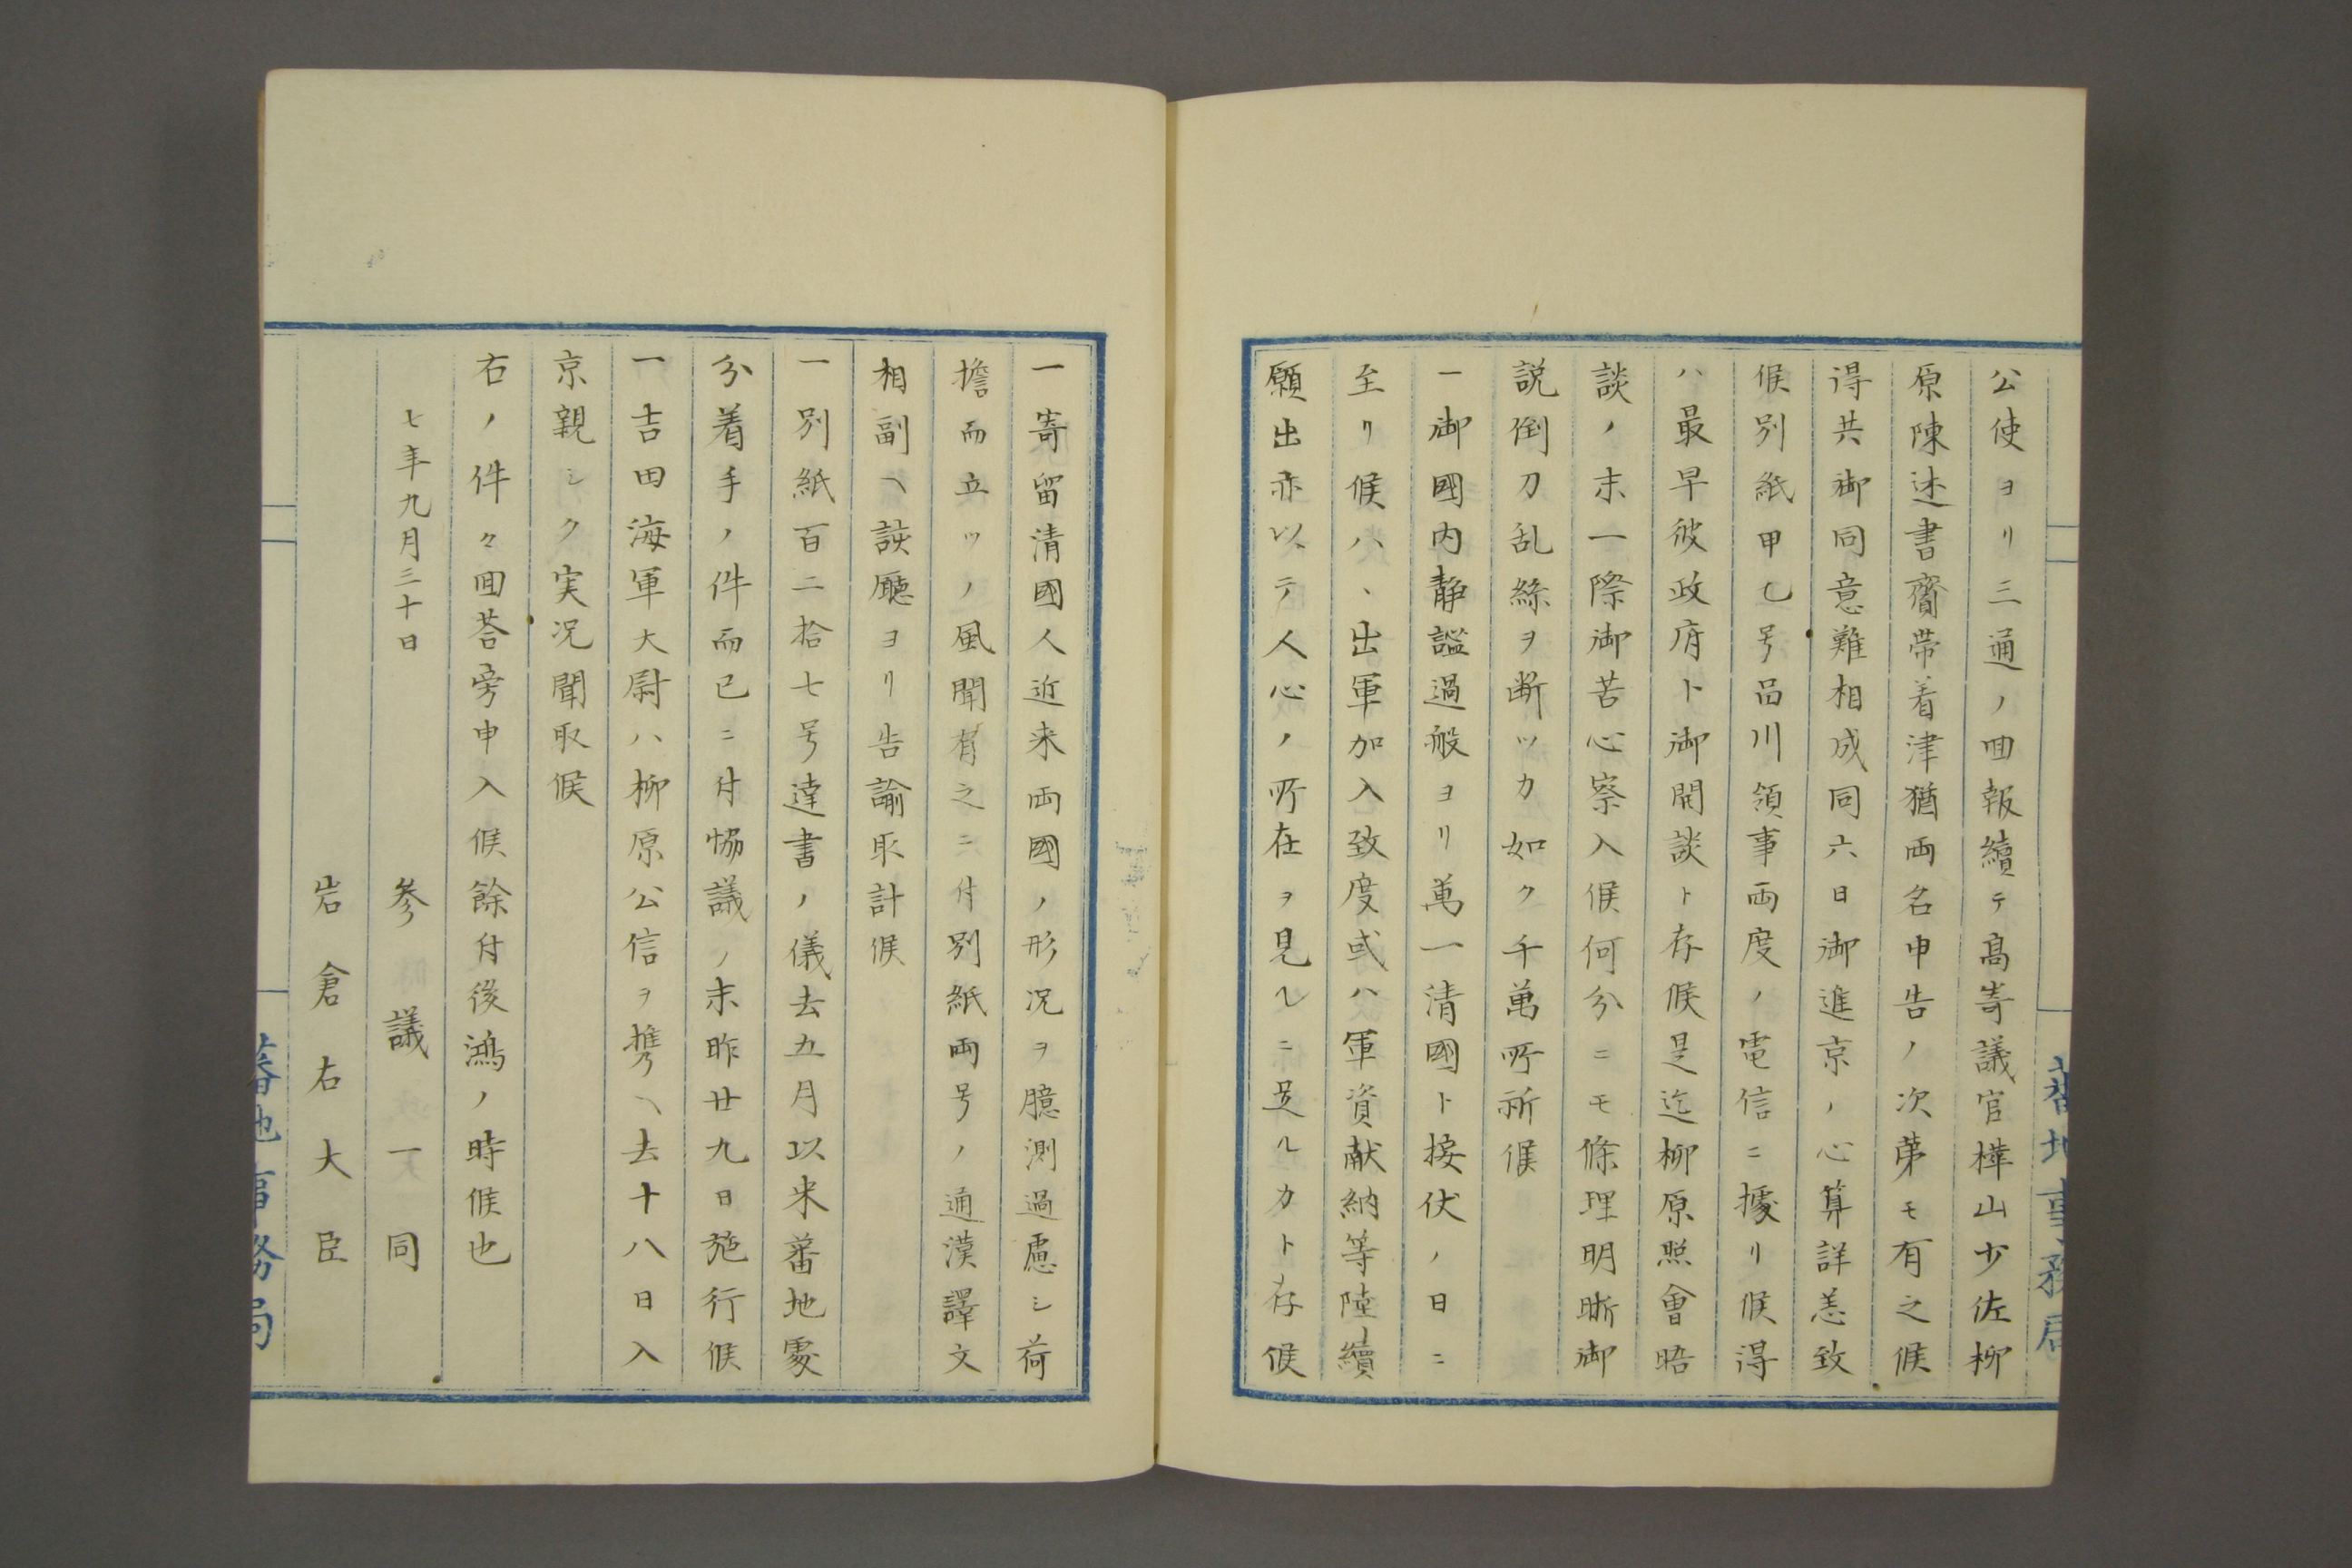 公使ヨリ三通ノ囬報續テ髙﨑議官樺山少佐柳
原陳述書齎帯着津猶両名申告ノ次第モ有之候
得共御同意難相成同六日御進京ノ心算詳恙致
候別紙甲乙号品川領事両度ノ電信ニ據リ候得
ハ最早彼政府ト御開談ト存候是迄柳原照會晤
談ノ末一際御苦心察入候何分ニモ條理明晰御
説倒刀乱絲ヲ断ツカ如ク千萬所祈候
一御國内静謐過般ヨリ萬一清國ト接伏ノ日ニ
至リ候ハヽ出軍加入致度或ハ軍資献納等陸續
願出亦以テ人心ノ所在ヲ見ルニ足ルカト存候
蕃地事務局
一寄留清國人近来両國ノ形况ヲ臆測過慮シ荷
擔而立ツノ風聞有之ニ付別紙両号ノ通漢譯文
相副ヘ該廳ヨリ告諭取計候
一別紙百二拾七号達書ノ儀去五月以来蕃地處
分着手ノ件而已ニ付恊議ノ末昨廿九日施行候
一吉田海軍大尉ハ柳原公信ヲ携ヘ去十八日入
京親シク実况聞取候
右ノ件々囬荅旁申入候餘付後鴻ノ時候也
七年九月三十日
参議一同
岩倉右大臣
蕃地事務局